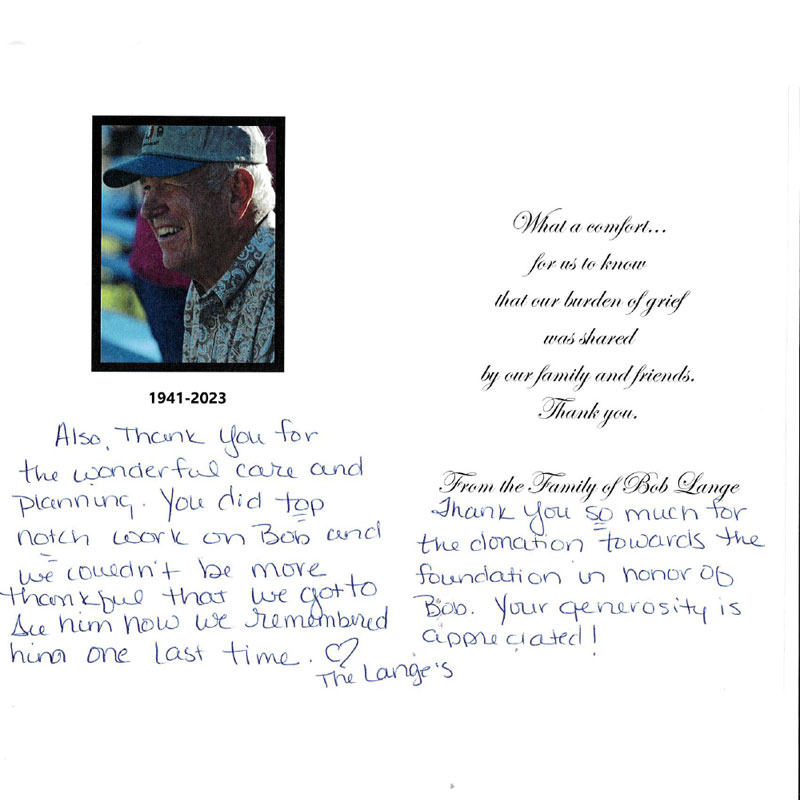 1941-2023
Also, Thank You for
the wonderful care and
planning. You did top
notch work on Bob and
we couldn't be more
thankful that we got to
see him how we remembered
him one last time. ♡
The Lange's
What a comfort...
for us to know
that our burden of grief
was shared
by our family and friends.
Thank you.
From the Family of Bob Lange
Thank you so much for
the donation towards the
foundation in honor of
Bob. Your generosity is
appreciated!